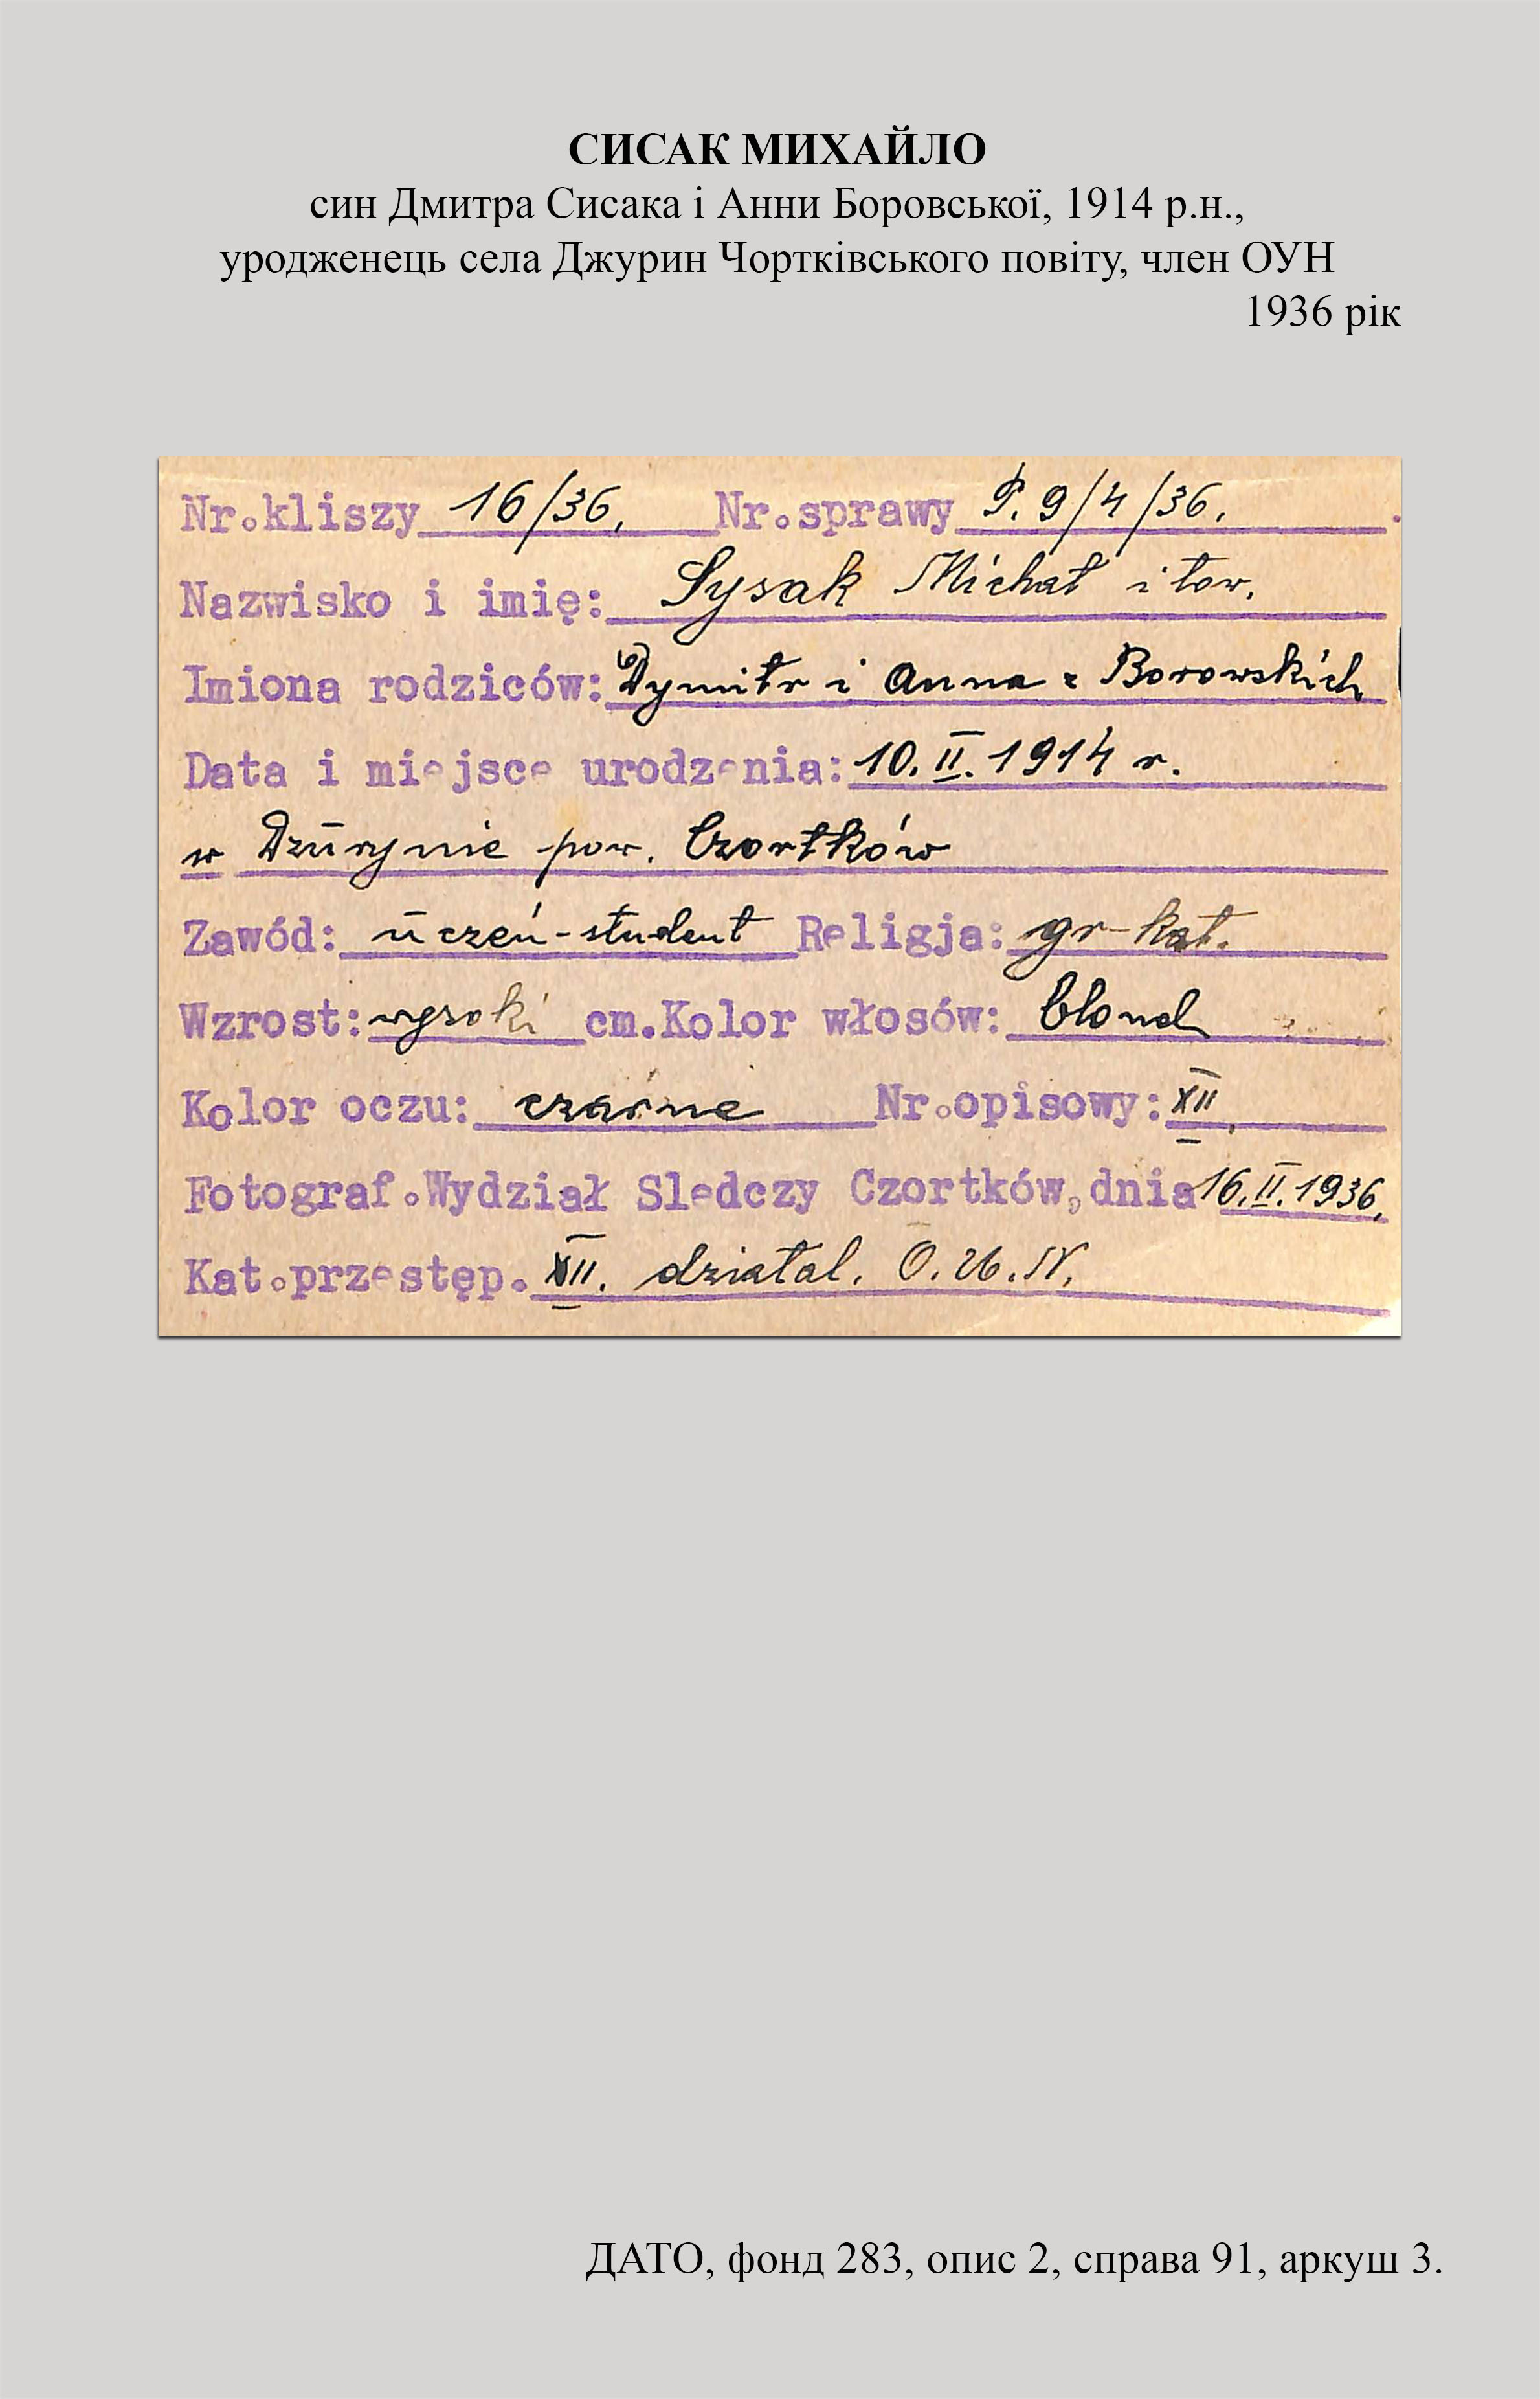 СИСАК МИХАЙЛО
син Дмитра Сисака і Анни Боровської, 1914 р.н.,
уродженець села Джурин Чортківського повіту, член ОУН
1936 рік
Nr.kliszy 16/36. Nr.sprawy P. 9/4/36.
Nazwisko i imię: Sysak Michał i tow.
Imiona rodziców: Dymitr i Anna z Borowskich
Data i miejsce urodzenia: 10.II.1914 r.
w Dżurynie pow. Czortków
Zawód: uczeń-student Religja: gr-kat.
Wzrost: wysoki cm. Kolor włosów: blond
Kolor oczu: czarne Nr.opisowy: XII.
Fotograf.Wydział Sledczy Czortków, dnia 16.II.1936.
Kat.przestęp. XII. działal. O.U.N.
ДАТО, фонд 283, опис 2, справа 91, аркуш 3.